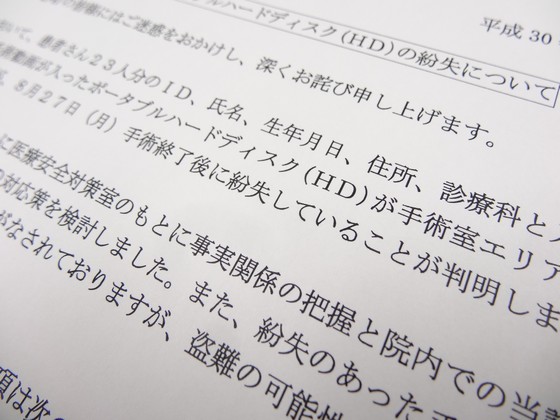 平成30
ブルハードディスク(HD)の紛失について
の皆様にはご迷惑をおかけし、深くお詫び申し上げます。
おいて、患者さん23人分のID、氏名、生年月日、住所、診療科と
動画が入ったポータブルハードディスク(HD)が手術室エリア
、8月27日(月)手術終了後に紛失していることが判明しま
に医療安全対策室のもとに事実関係の把握と院内での当
対応策を検討しました。また、紛失のあった
がなされておりますが、盗難の可能性
項は次の